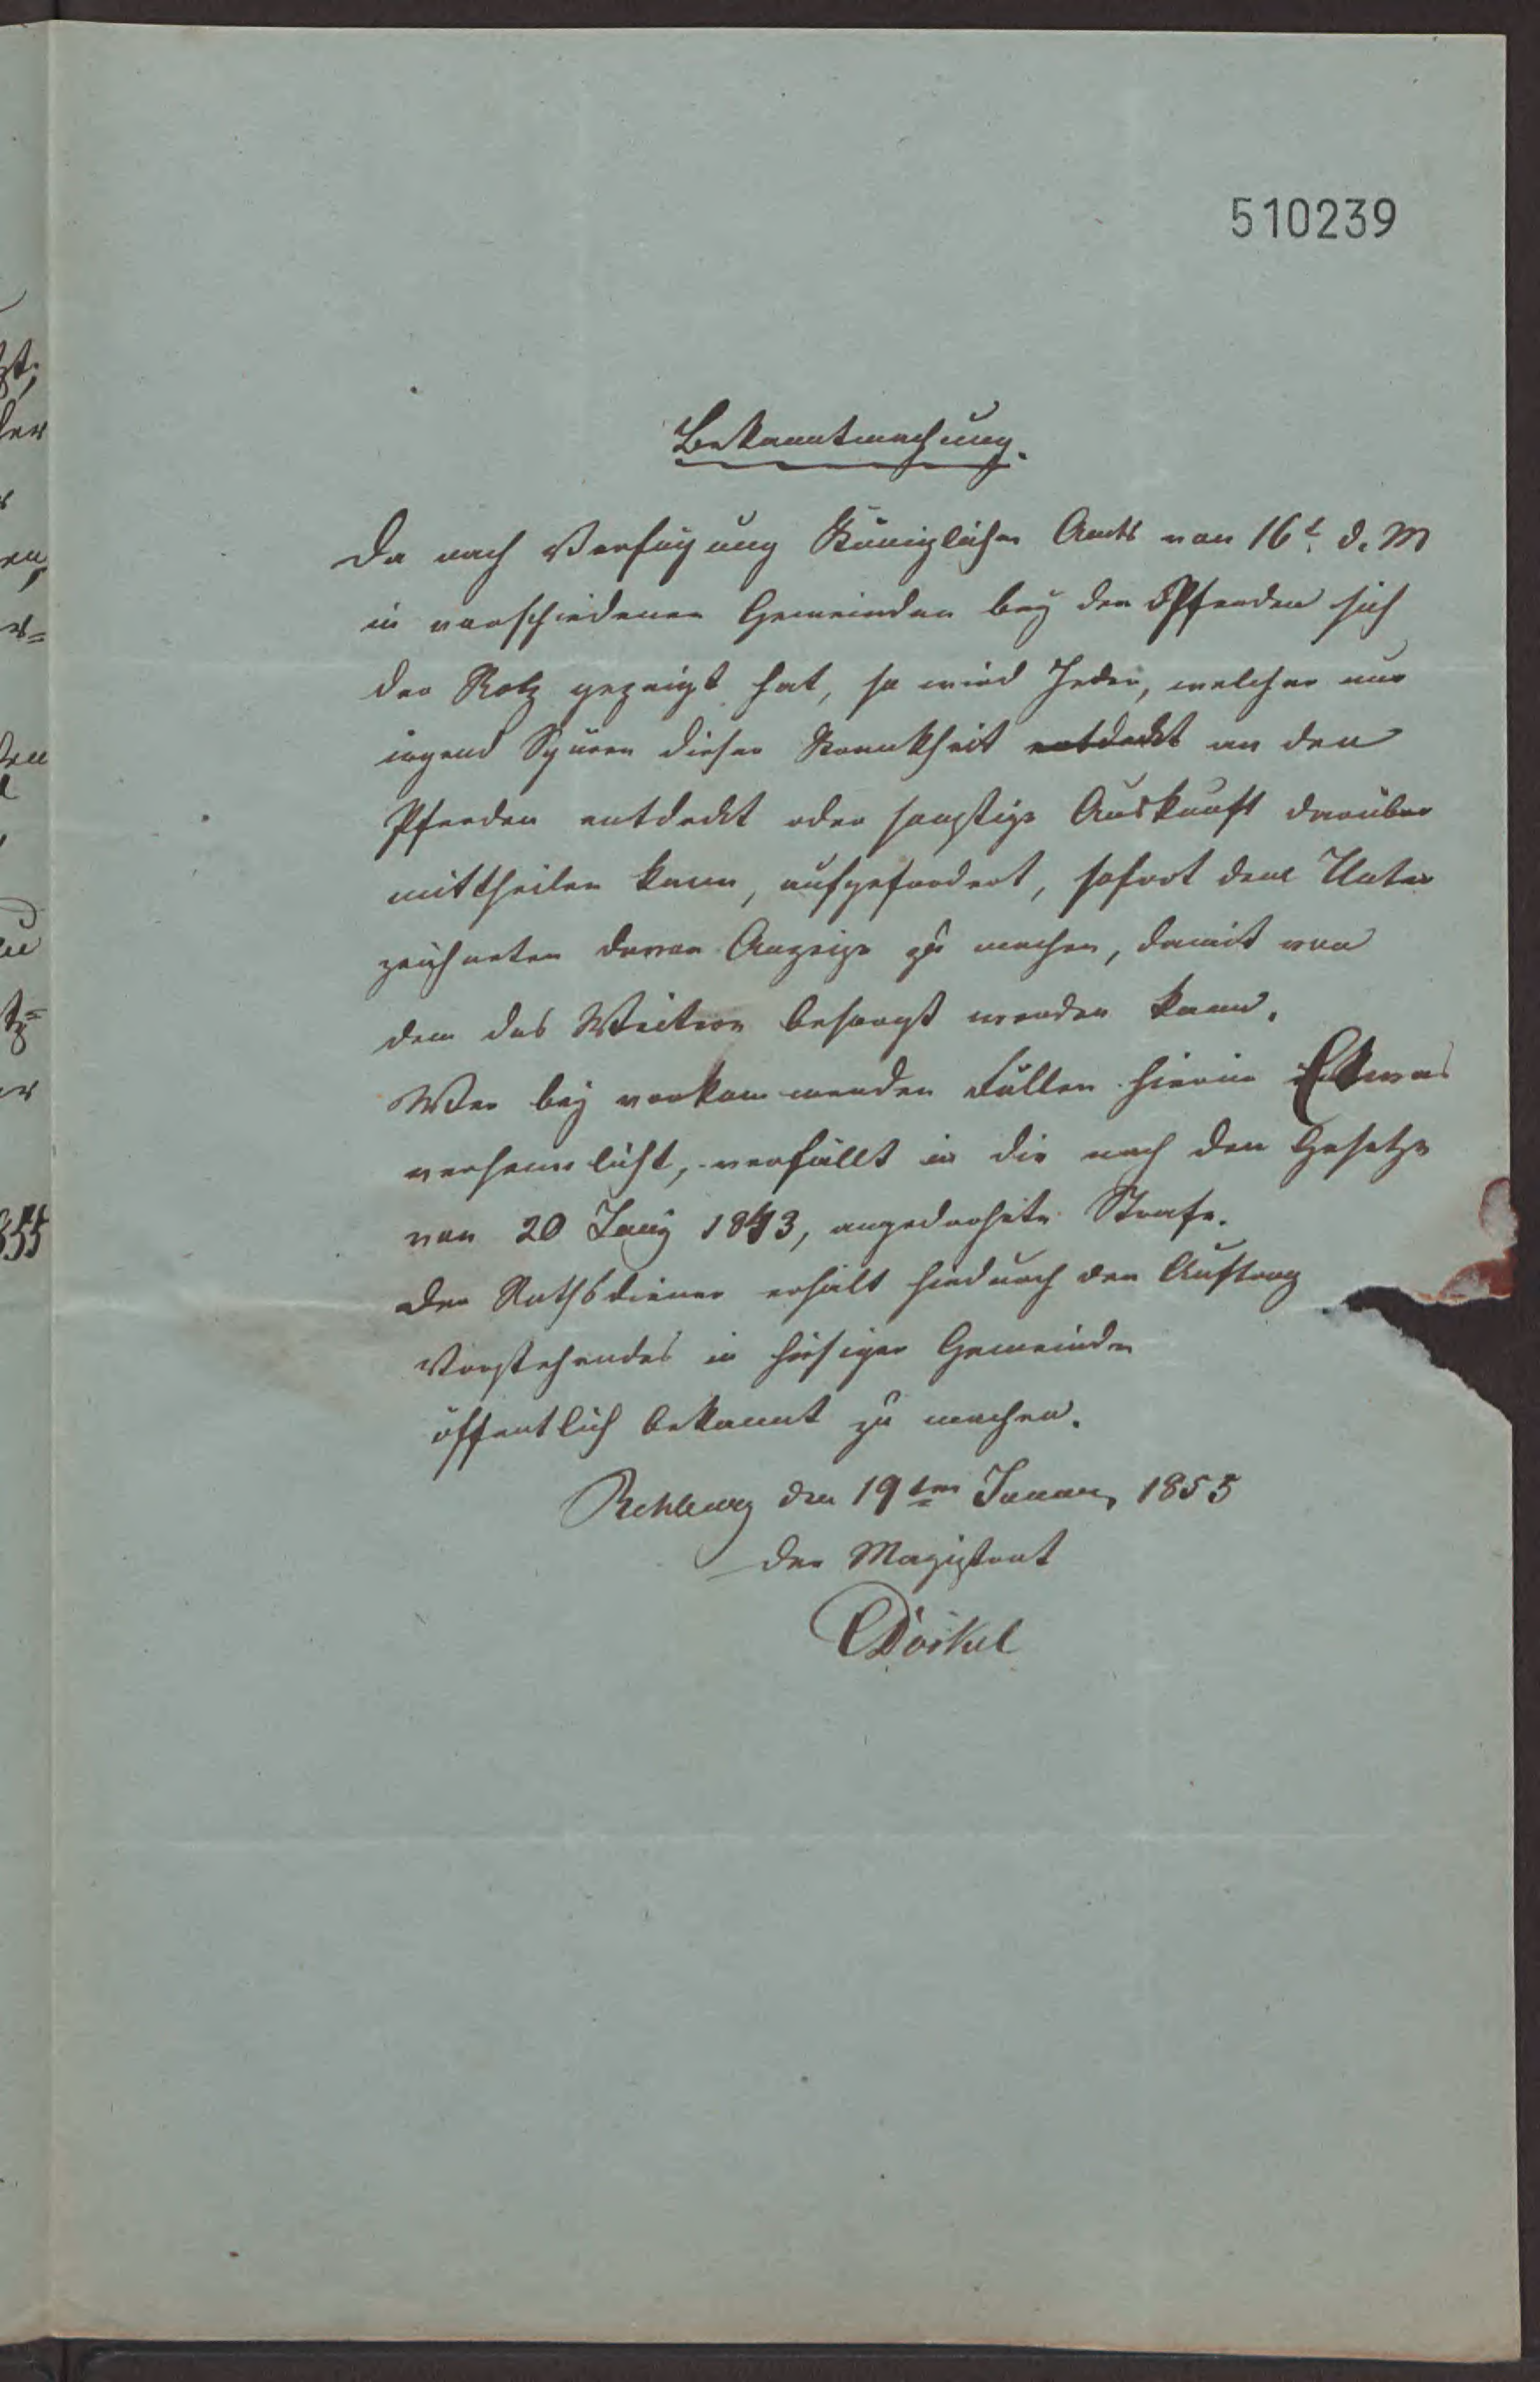 510239
Bekanntmachung.
Da nach Verfügung Königlichen Amts von 16t. d. M
in verschiedenen Gemeinden bey den Pferden sich
der Rotz gezeigt hat, so wird Jeder, welcher nur
irgend Spuren dieser Krankheit entdeckt an den
Pferden entdeckt oder sonstige Auskunft darüber
mittheilen kann, aufgefordert, sofort dem Unter
zeichneten davon Anzeige zu machen, damit von
dem das Weitere besorgt werden kann.
Wer bey vorkommenden Fällen hierin Etwas
verheimlicht, verfällt in die nach den Gesetze
von 20 Juny 1843, angedrohete Strafe.
Der Rathsdiener erhält hiedurch den Auftrag
Vorstehendes in hiesiger Gemeinde
öffentlich bekannt zu machen.
Rehburg den 19ten Januar 1855
Der Magistrat